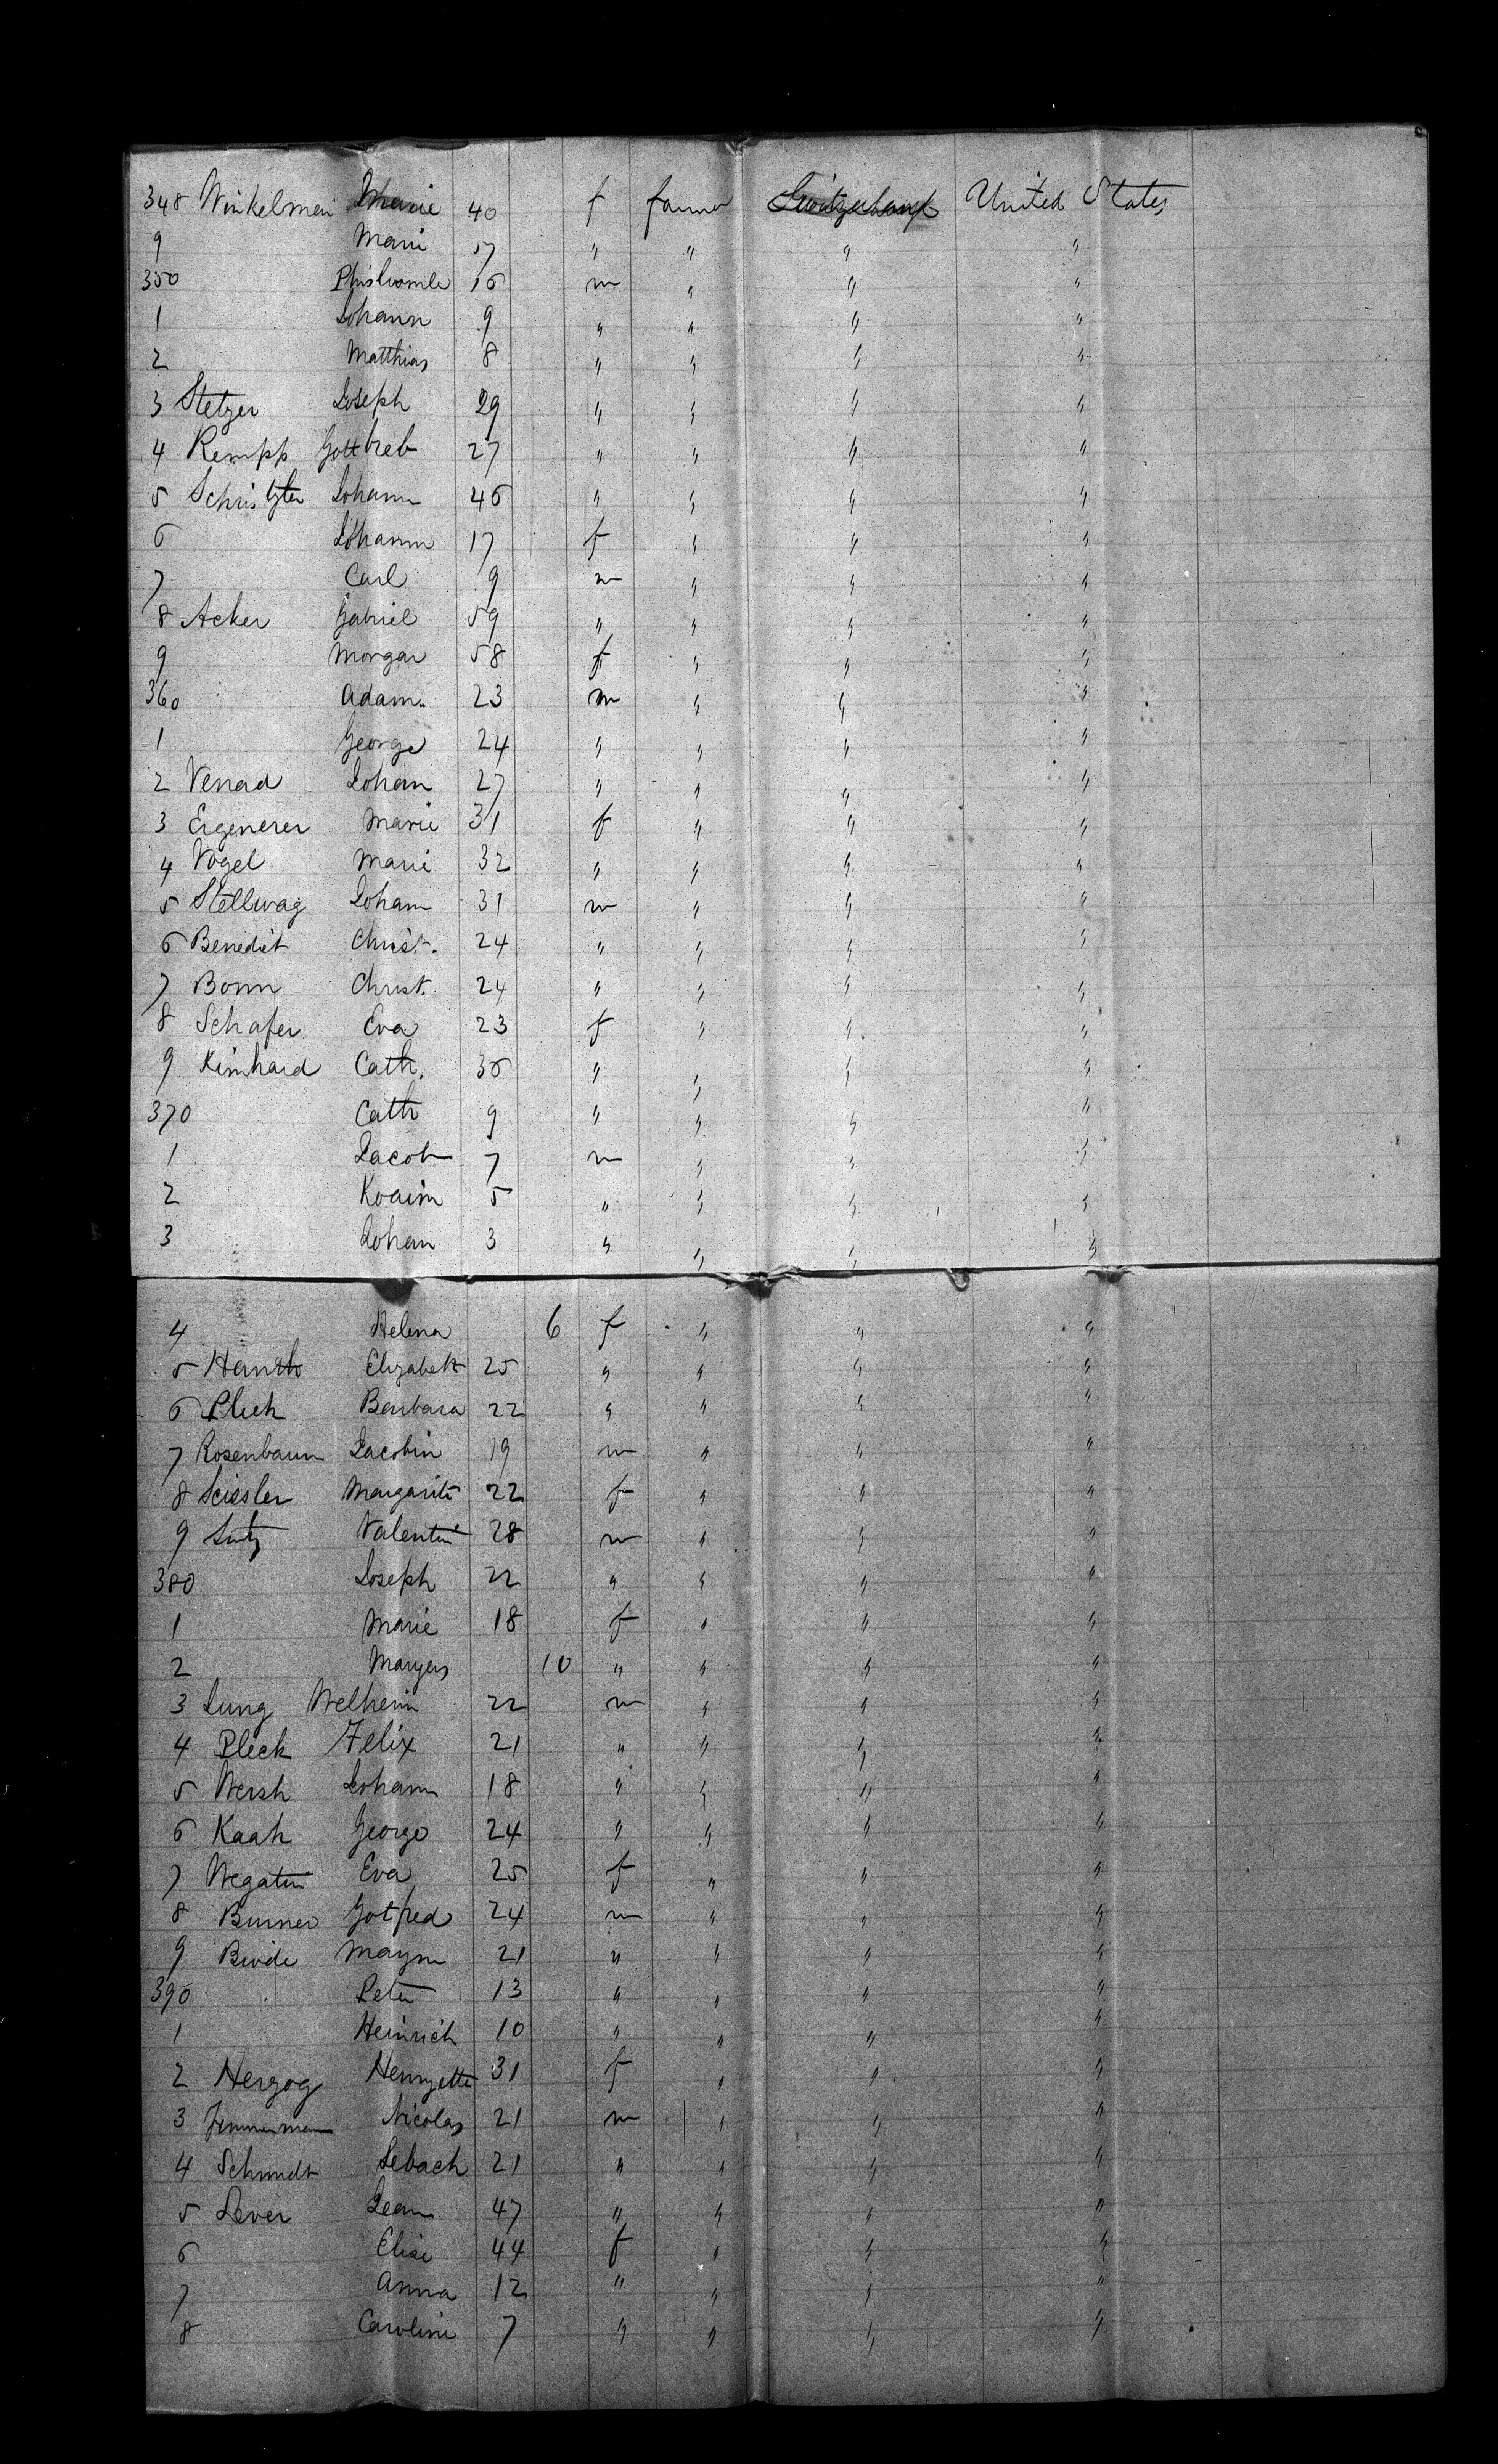 348 Winkelmen Marie 40 f farmer Switzerland United States
9 Marie 17 " " " "
350 16 m " " "
1 Johann 9 " " " "
2 Matthias 8 " " " "
3 Stetzer Joseph 29 " " " "
4 Rempp Gottlieb 27 " " " "
5 Johann 46 " " " "
6 Johann 17 f " " "
7 Carl 9 m " " "
8 Acker Gabriel 59 " " " "
9 Morgar 58 f " " "
360 Adam. 23 m " " "
1 George 24 " " " "
2 Venad Johan 27 " " " "
3 Ergenerer Marie 31 f " " "
4 Vogel Marie 32 " " " "
5 Stellwag Johann 31 m " " "
6 Benedict Christ. 24 " " " "
7 Bonn Christ. 24 " " " "
8 Schafer Eva 23 f " " "
9 Kimhard Cath. 36 " " " "
370 Cath 9 " " " "
1 Jacob 7 m " " "
2 Koaim 5 " " " "
3 Johan 3 " " " "
4 Helena 6 f " " "
5 Elizabeth 25 " " " "
6 Pleck Barbara 22 " " " "
7 Rosenbaum Jacobin 19 m " " "
8 Scissler Margarite 22 f " " "
9 Lutz Valentin 28 m " " "
380 Joseph 22 " " " "
1 Marie 18 f " " "
2 10 " " " "
3 Lung Welhem 22 m " " "
4 Pleck Felix 21 " " " "
5 Wersh Johann 18 " " " "
6 Kaah George 24 " " " "
7 Wegatin Eva 25 f " " "
8 Burner Gotfred 24 m " " "
9 21 " " " "
390 Peter 13 " " " "
1 Heinrich 10 " " " "
2 Herzog Henryette 31 f " " "
3 Zimmerman Nicolas 21 m " " "
4 Schmidt Sebach 21 " " " "
5 Lever Jean 47 " " " "
6 Elise 44 f " " "
7 Anna 12 " " " "
8 Caroline 7 " " " "